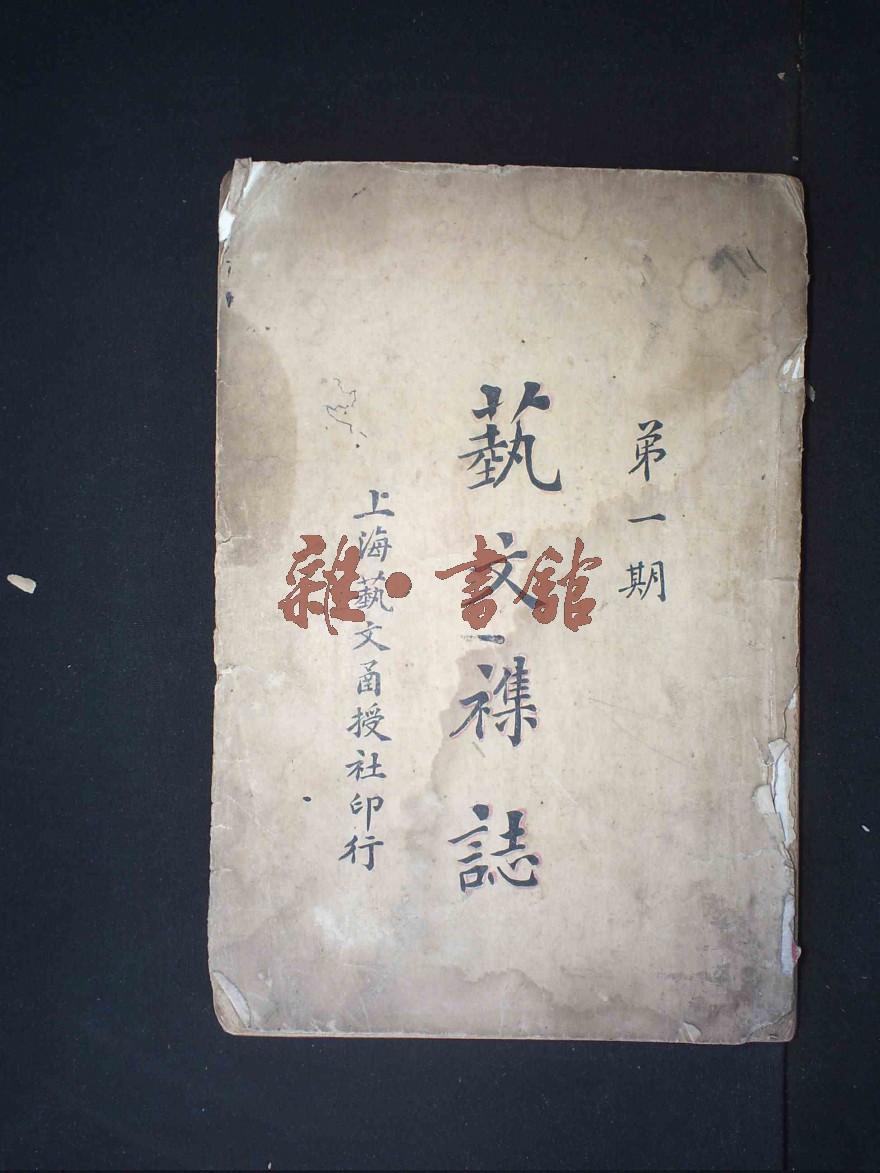 第一期
藝文襍誌
上海藝文函授社印行
雜·書館